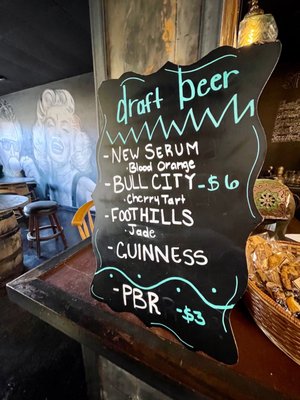 draft beer
- NEW SERUM
• Blood Orange
- BULL CITY - $6
• Cherry Tart
- FOOTHILLS
• Jade
- GUINNESS
- PBR - $3